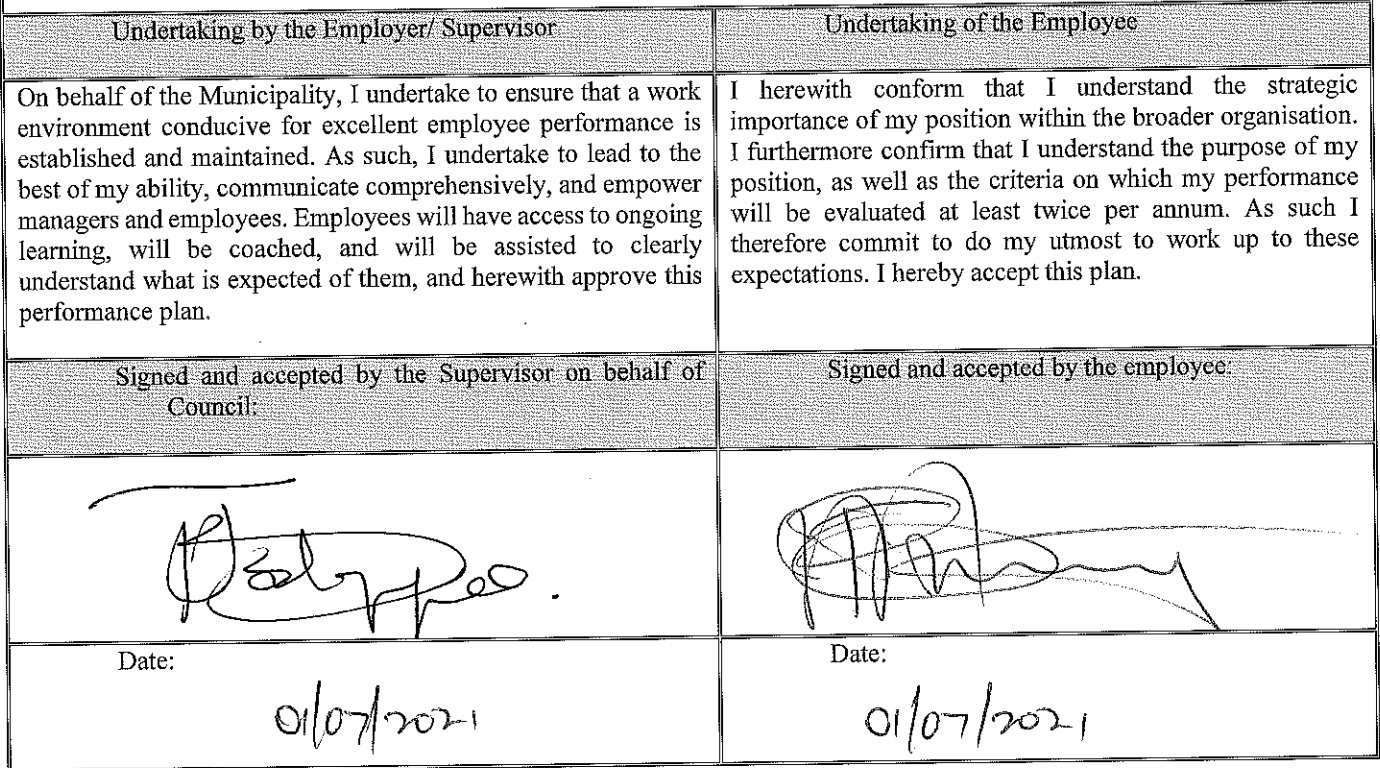 Undertaking by the Employer/ Supervisor
On behalf of the Municipality, I undertake to ensure that a work
environment conducive for excellent employee performance is
established and maintained. As such, I undertake to lead to the
best of my ability, communicate comprehensively, and empower
managers and employees. Employees will have access to ongoing
learning, will be coached, and will be assisted to clearly
understand what is expected of them, and herewith approve this
performance plan.
Undertaking of the Employee
I herewith conform that I understand the strategic
importance of my position within the broader organisation.
I furthermore confirm that I understand the purpose of my
position, as well as the criteria on which my performance
will be evaluated at least twice per annum. As such I
therefore commit to do my utmost to work up to these
expectations. I hereby accept this plan.
Signed and accepted by the Supervisor on behalf of
Council:
Signed and accepted by the employee:
Date:
01/07/2021
Date:
01/07/2021